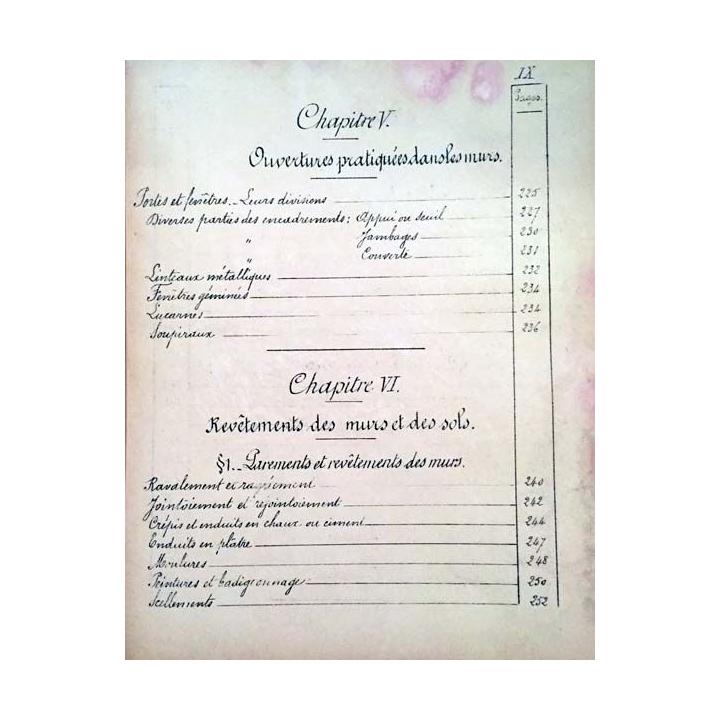 IX
Pages.
Chapitre V.
Ouvertures pratiquées dans les murs.
Portes et fenêtres. - Leurs divisions 225
Diverses parties des encadrements: Appui ou seuil 227
" Jambages 230
" Couverte 231
Linteaux métalliques 232
Fenêtres géminées 234
Lucarnes 234
Soupiraux 236
Chapitre VI.
Revêtements des murs et des sols.
§1. - Parements et revêtements des murs.
Ravalement et ragrément 240
Jointoiement et rejointoiement 242
Crépis et enduits en chaux ou ciment 244
Enduits en plâtre 247
Moulures 248
Peintures et badigeonnage 250
Scellements 252